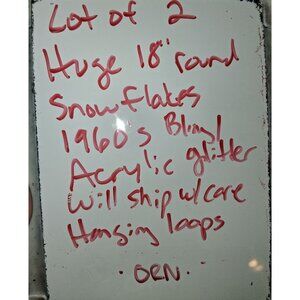 Lot of 2
Huge 18" round
Snowflakes
1960s Bling!
Acrylic glitter
will ship w/care
Hanging loops
· ORN ·